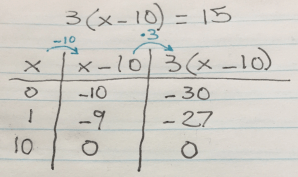 3(x-10) = 15
-10 ·3
x x-10 3(x-10)
0 -10 -30
1 -9 -27
10 0 0